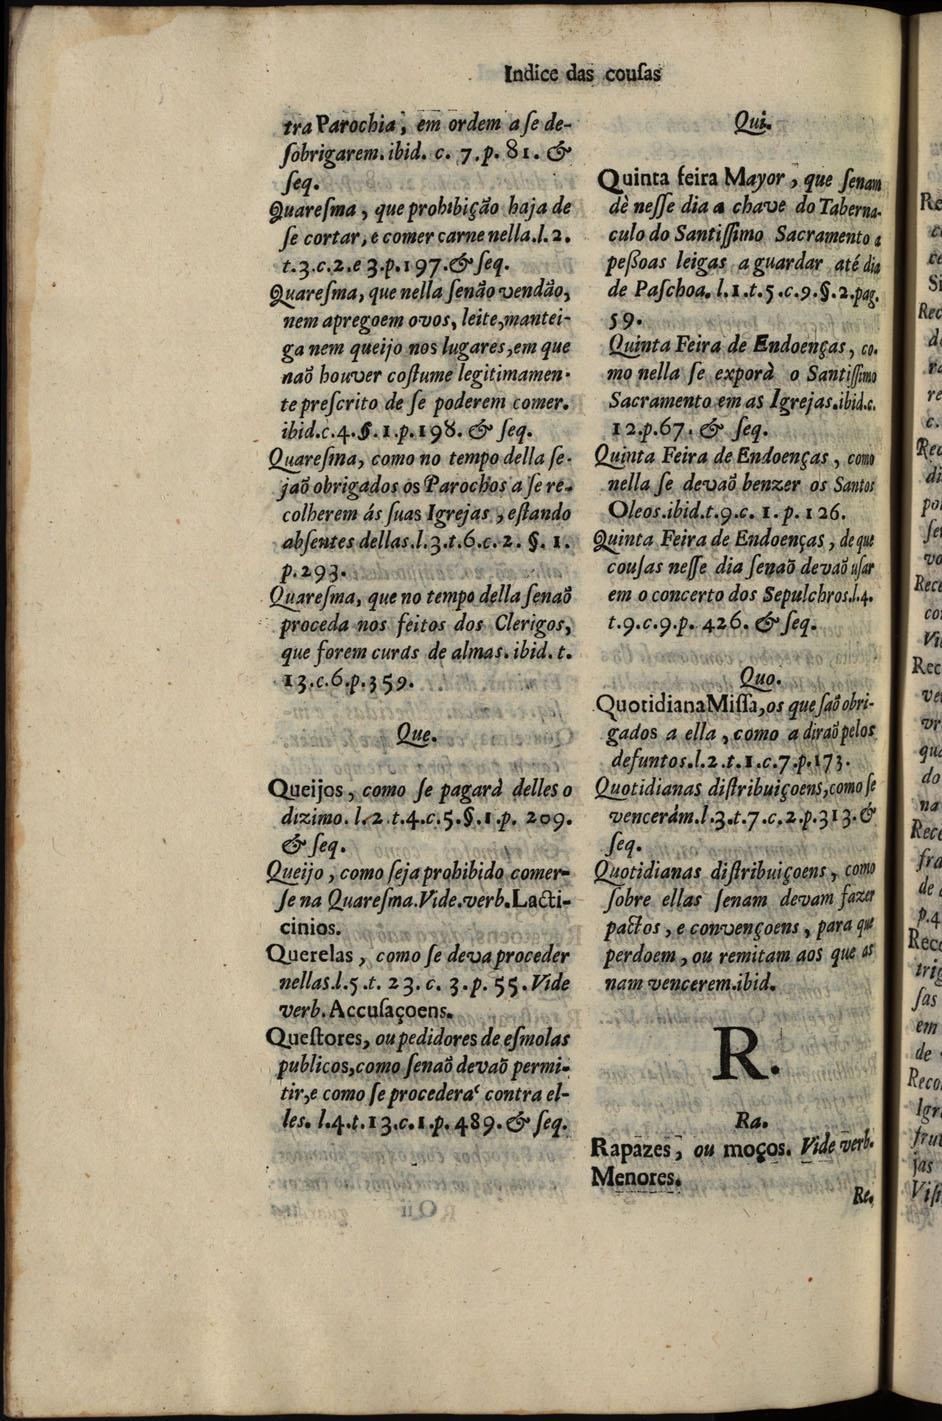 Indice das couſas
tra Parochia, em ordem a ſe de-
ſobrigarem. ibid. c. 7. p. 81. &
ſeq.
Quareſma, que prohibição haja de
ſe cortar, e comer carne nella. l. 2.
t. 3. c. 2. e 3. p. 197. & ſeq.
Quareſma, que nella ſenão vendão,
nem apregoem ovos, leite, mantei-
ga nem queijo nos lugares, em que
naõ houver coſtume legitimamen-
te preſcrito de ſe poderem comer.
ibid. c. 4. §. 1. p. 198. & ſeq.
Quareſma, como no tempo della ſe-
jaõ obrigados os Parochos a ſe re-
colherem ás ſuas Igrejas, eſtando
abſentes dellas. l. 3. t. 6. c. 2. §. 1.
p. 293.
Quareſma, que no tempo della ſenaõ
proceda nos feitos dos Clerigos,
que forem curas de almas. ibid. t.
13. c. 6. p. 359.
Que.
Queijos, como ſe pagarà delles o
dizimo. l. 2 t. 4. c. 5. §. 1. p. 209.
& ſeq.
Queijo, como ſeja prohibido comer-
ſe na Quareſma. Vide. verb. Lacti-
cinios.
Querelas, como ſe deva proceder
nellas. l. 5. t. 23. c. 3. p. 55. Vide
verb. Accuſaçoens.
Queſtores, ou pedidores de eſmolas
publicos, como ſenaõ devaõ permi-
tir, e como ſe procedera contra el-
les. l. 4. t. 13. c. 1. p. 489. & ſeq.
Qui.
Quinta feira Mayor, que ſenam
dè neſſe dia a chave do Taberna-
culo do Santiſſimo Sacramento a
peßoas leigas a guardar até dia
de Paſchoa. l. 1. t. 5. c. 9. §. 2. pag.
59.
Quinta Feira de Endoenças, co-
mo nella ſe exporà o Santiſſimo
Sacramento em as Igrejas. ibid. c.
12. p. 67. & ſeq.
Quinta Feira de Endoenças, como
nella ſe devaõ benzer os Santos
Oleos. ibid. t. 9. c. 1. p. 126.
Quinta Feira de Endoenças, de que
couſas neſſe dia ſenaõ devaõ uſar
em o concerto dos Sepulchros. l. 4.
t. 9. c. 9. p. 426. & ſeq.
Quo.
Quotidiana Miſſa, os que ſaõ obri-
gados a ella, como a diraõ pelos
defuntos. l. 2. t. 1. c. 7. p. 173.
Quotidianas diſtribuiçoens, como ſe
vencerám. l. 3. t. 7. c. 2. p. 313. &
ſeq.
Quotidianas diſtribuiçoens, como
ſobre ellas ſenam devam fazer
pactos, e convençoens, para que
perdoem, ou remitam aos que as
nam vencerem. ibid.
R.
Ra.
Rapazes, ou moços. Vide verb.
Menores.
Re.